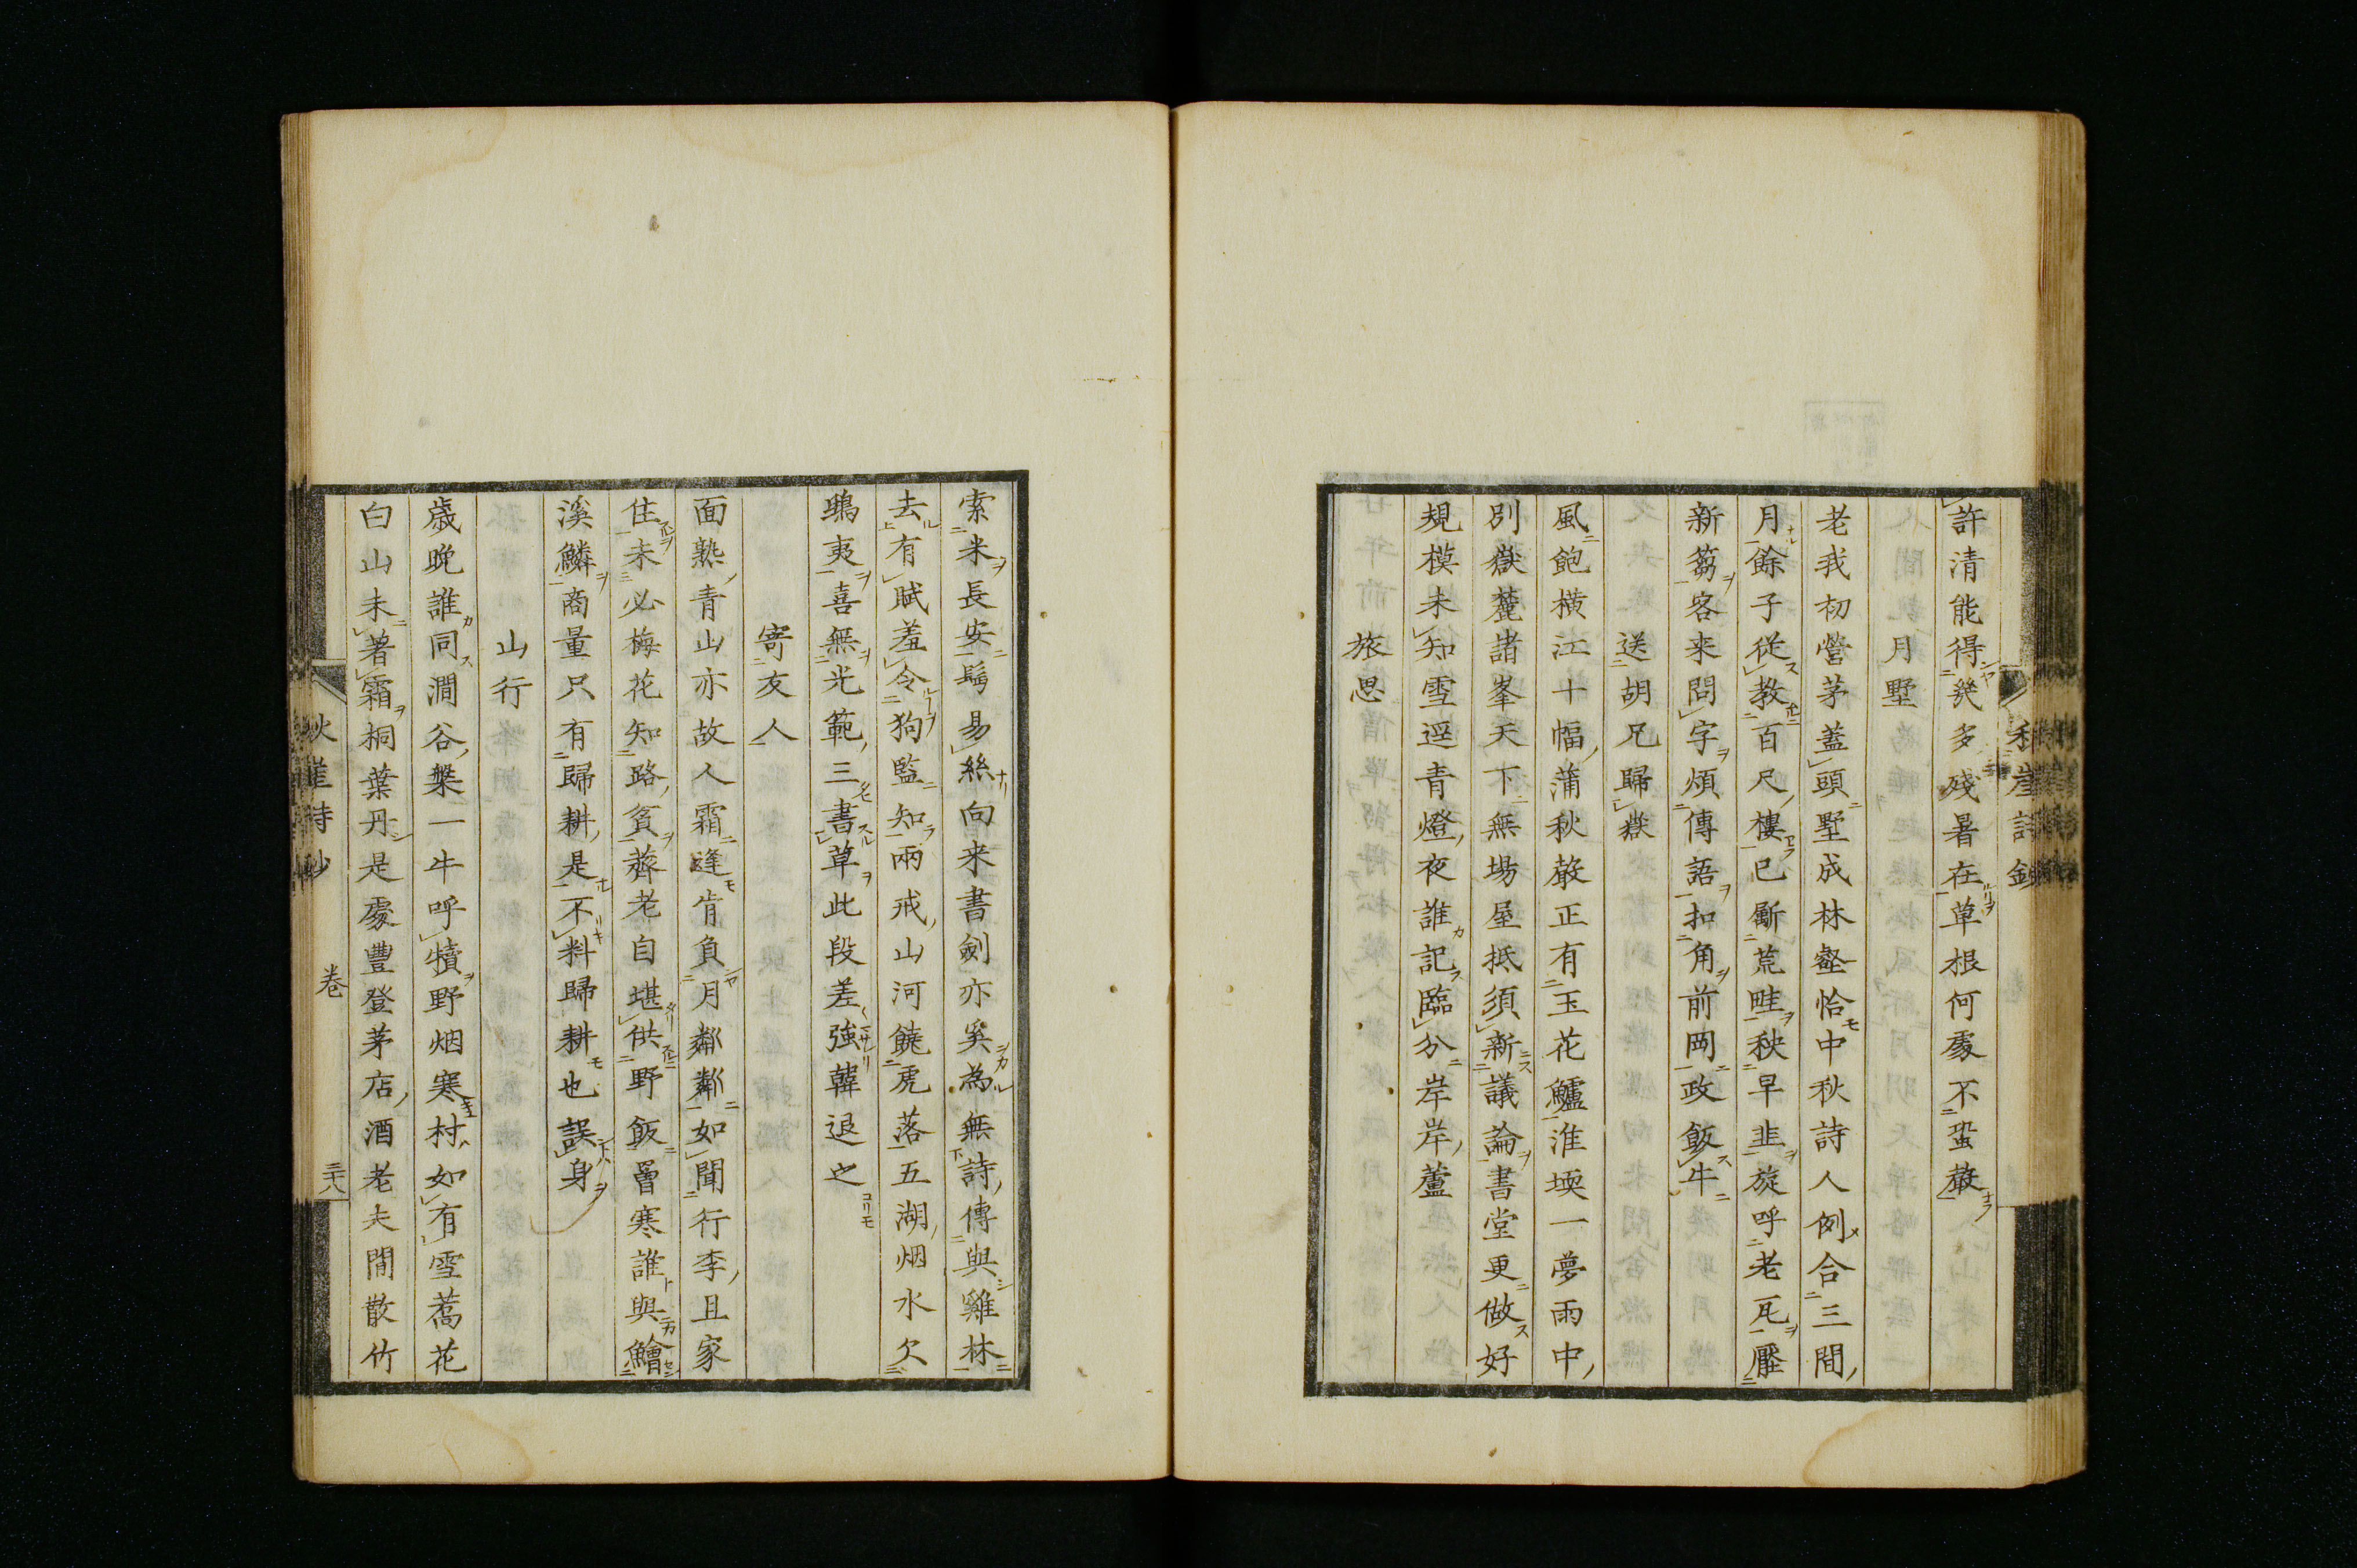 許清能得幾多殘暑在草根何處不蛩聲
月墅
老我初營茅蓋頭墅成林壑恰中秋詩人例合三間
月餘子從教百尺樓已斸荒畦秧早韭旋呼老瓦壓
新篘客来問字煩傳語扣角前岡政飯牛
送胡兄歸嶽
風飽橫江十幅蒲秋聲正有玉花鱸淮堧一夢雨中
別嶽麓諸峯天下無場屋抵須新議論書堂更做好
規模未知雪逕青燈夜誰記臨分岸岸蘆
旅思
索米長安鬂易絲向来書劍亦奚為無詩傳與雞林
去有賦羞令狗監知兩戒山河饒虎落五湖烟水欠
鴟夷喜無光範三書草此段差強韓退之
寄友人
面熟青山亦故人霜逢肯負月粼粼如聞行李且家
住未必梅花知路貧虀老自堪供野飯曽寒誰與鱠
溪鱗商量只有歸耕是不料歸耕也誤身
山行
歳晚誰同澗谷槃一牛呼犢野烟寒村如有雪蕎花
白山未著霜桐葉丹是處豐登茅店酒老夫閒散竹
秋崖詩鈔
卷
三十八